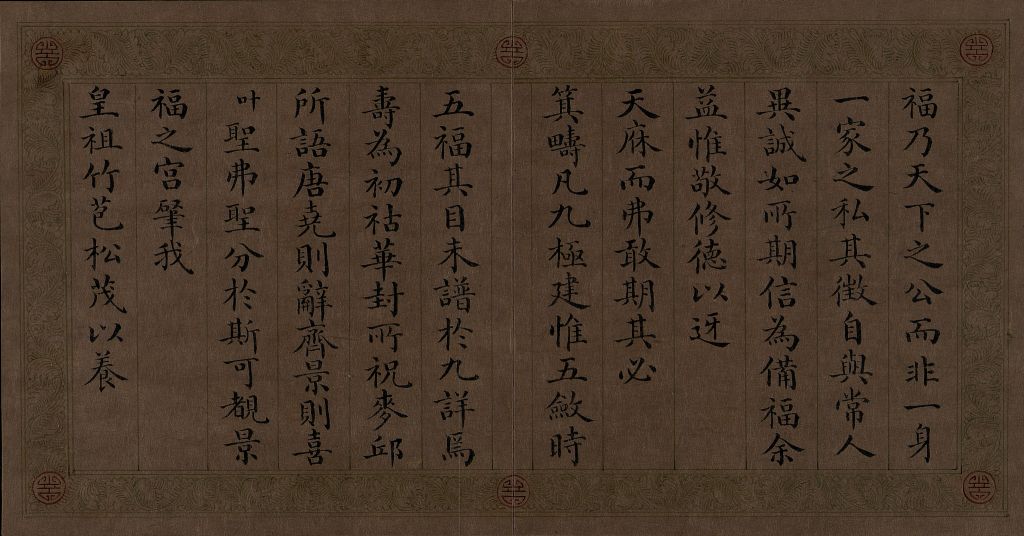 福乃天下之公而非一身
一家之私其徵自與常人
異誠如所期信為備福余
益惟敬修德以迓
天庥而弗敢期其必
箕疇凡九極建惟五斂時
五福其目未譜於九詳焉
壽為初祜華封所祝麥邱
所語唐堯則辭齊景則喜
叶聖弗聖分於斯可覩景
福之宮肇我
皇祖竹苞松茂以養